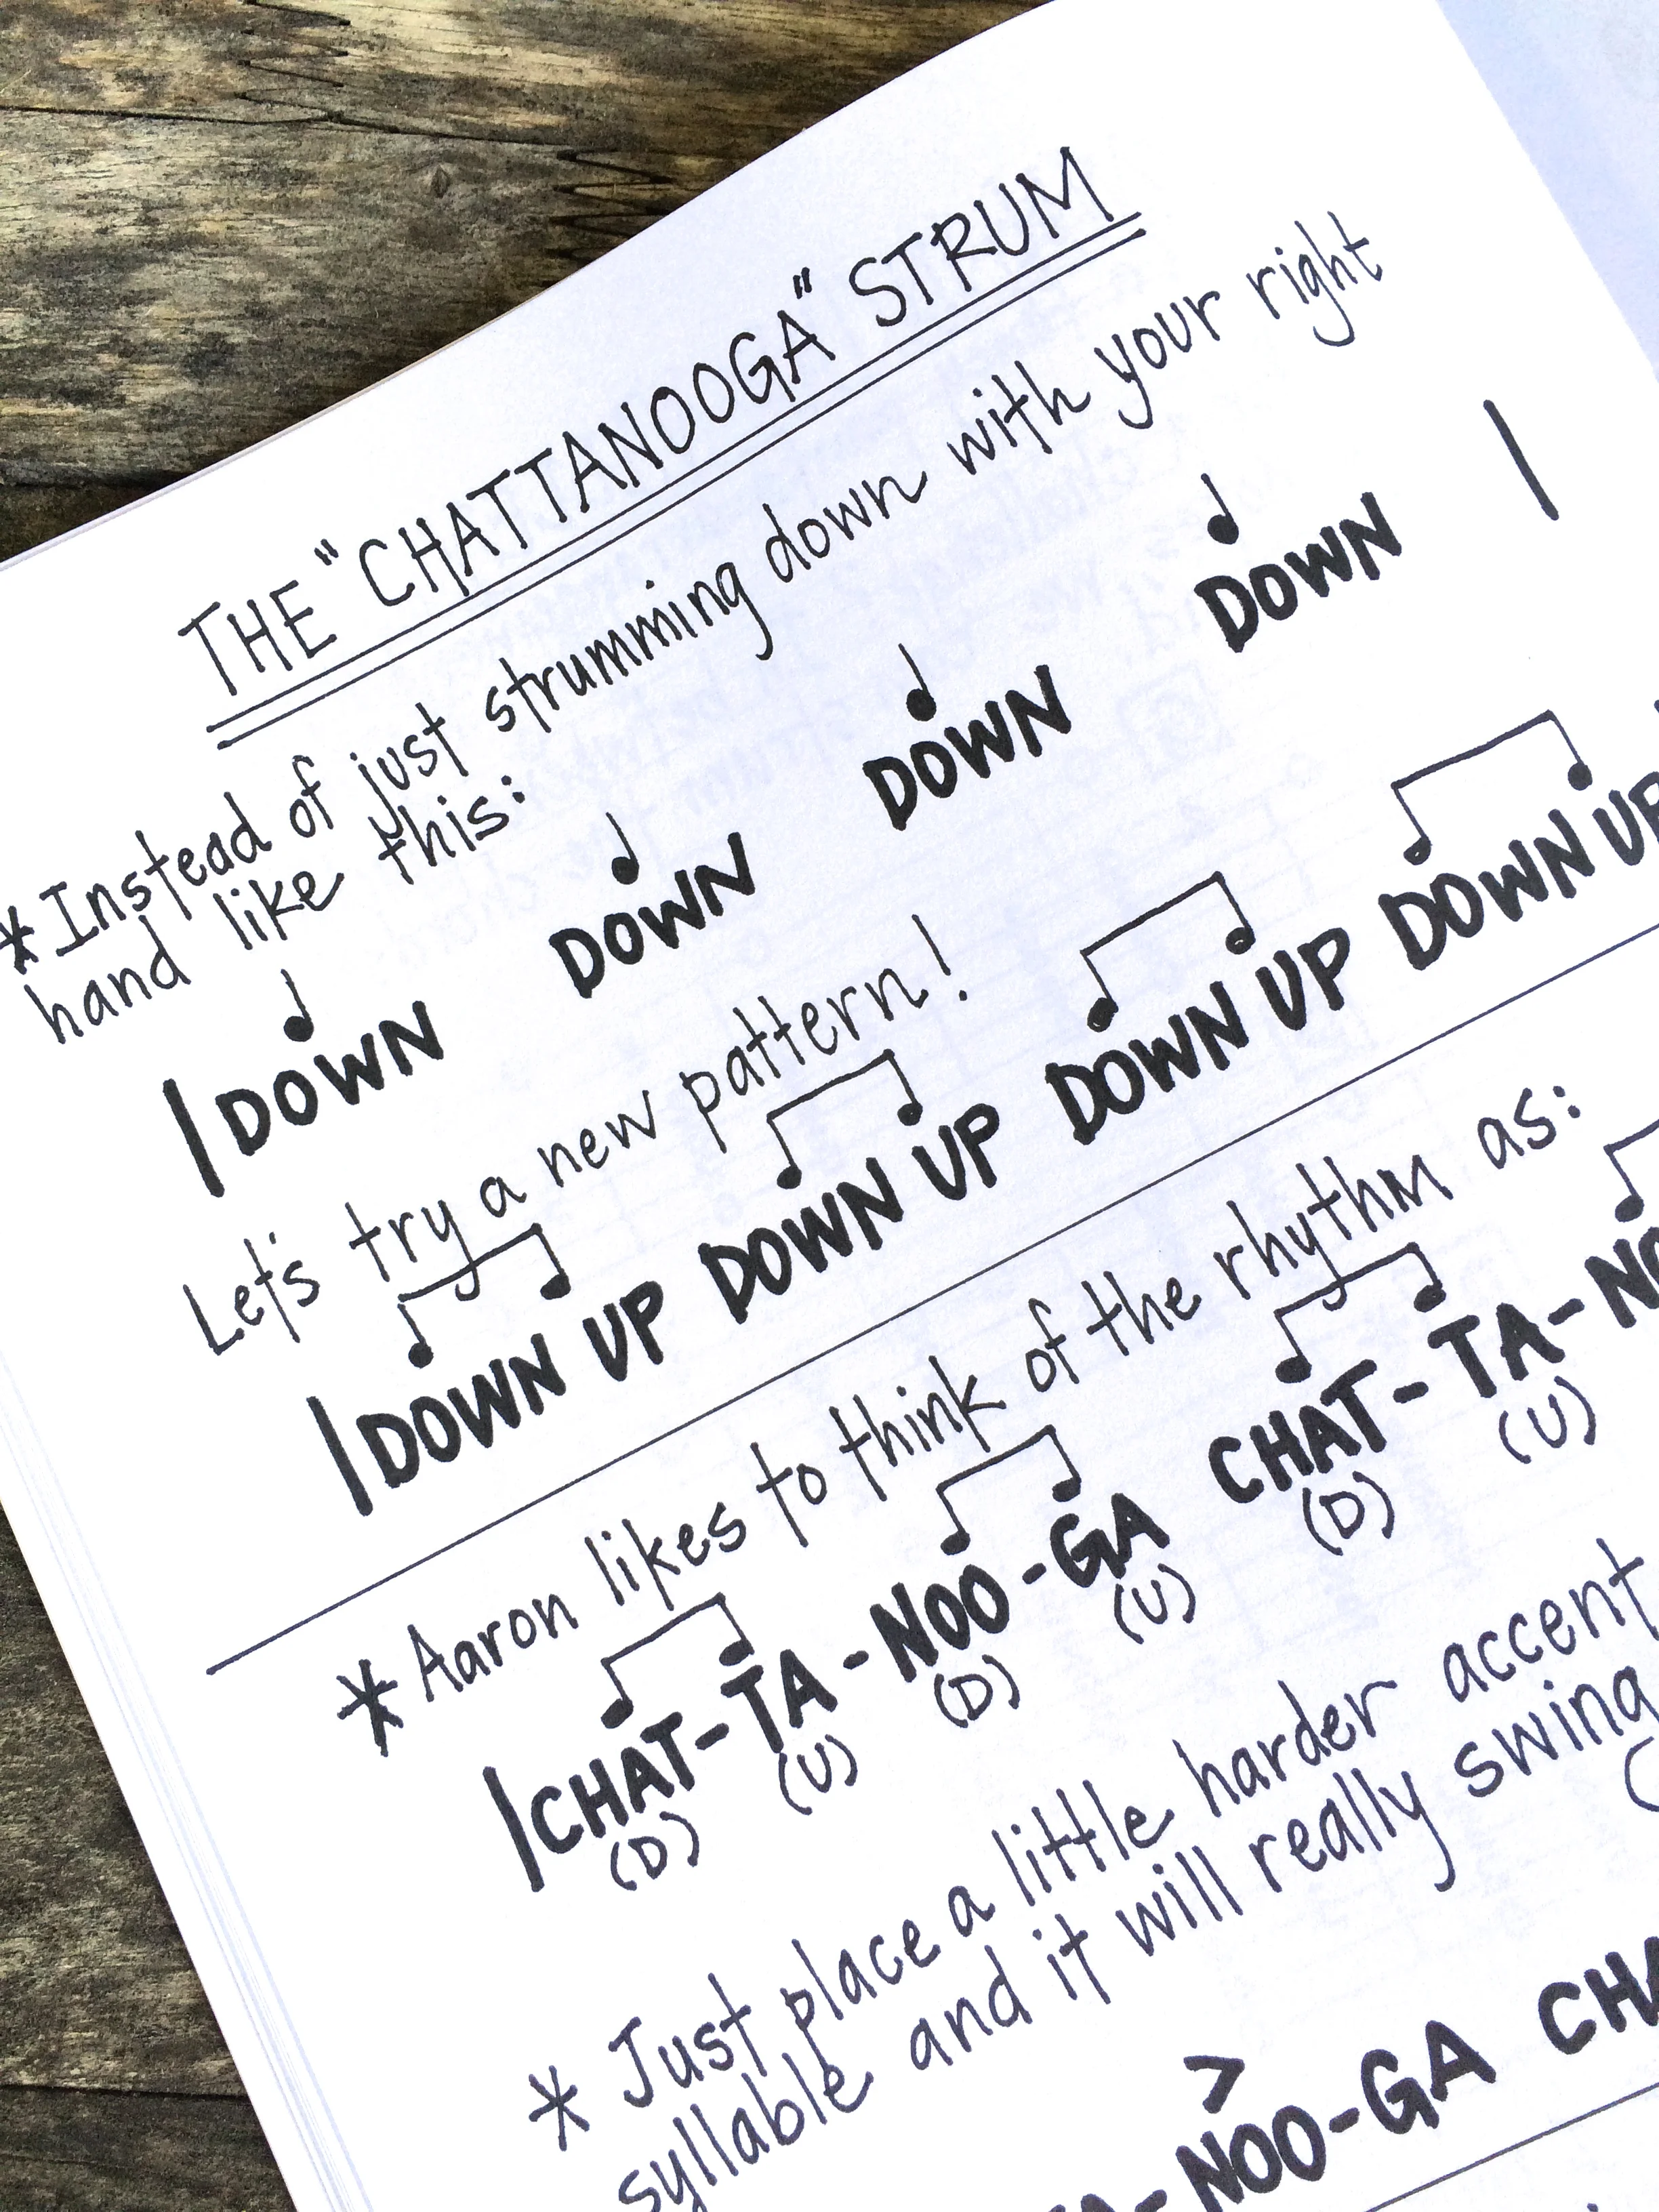 THE "CHATTANOOGA" STRUM
* Instead of just strumming down with your right
hand like this:
| DOWN DOWN DOWN DOWN |
Let's try a new pattern!
| DOWN UP DOWN UP DOWN UP DOWN UP
* Aaron likes to think of the rhythm as:
| CHAT-TA-NOO-GA CHAT-TA-
(D) (U) (D) (U) (D) (U)
* Just place a little harder accent
syllable and it will really swing
>
-NOO-GA